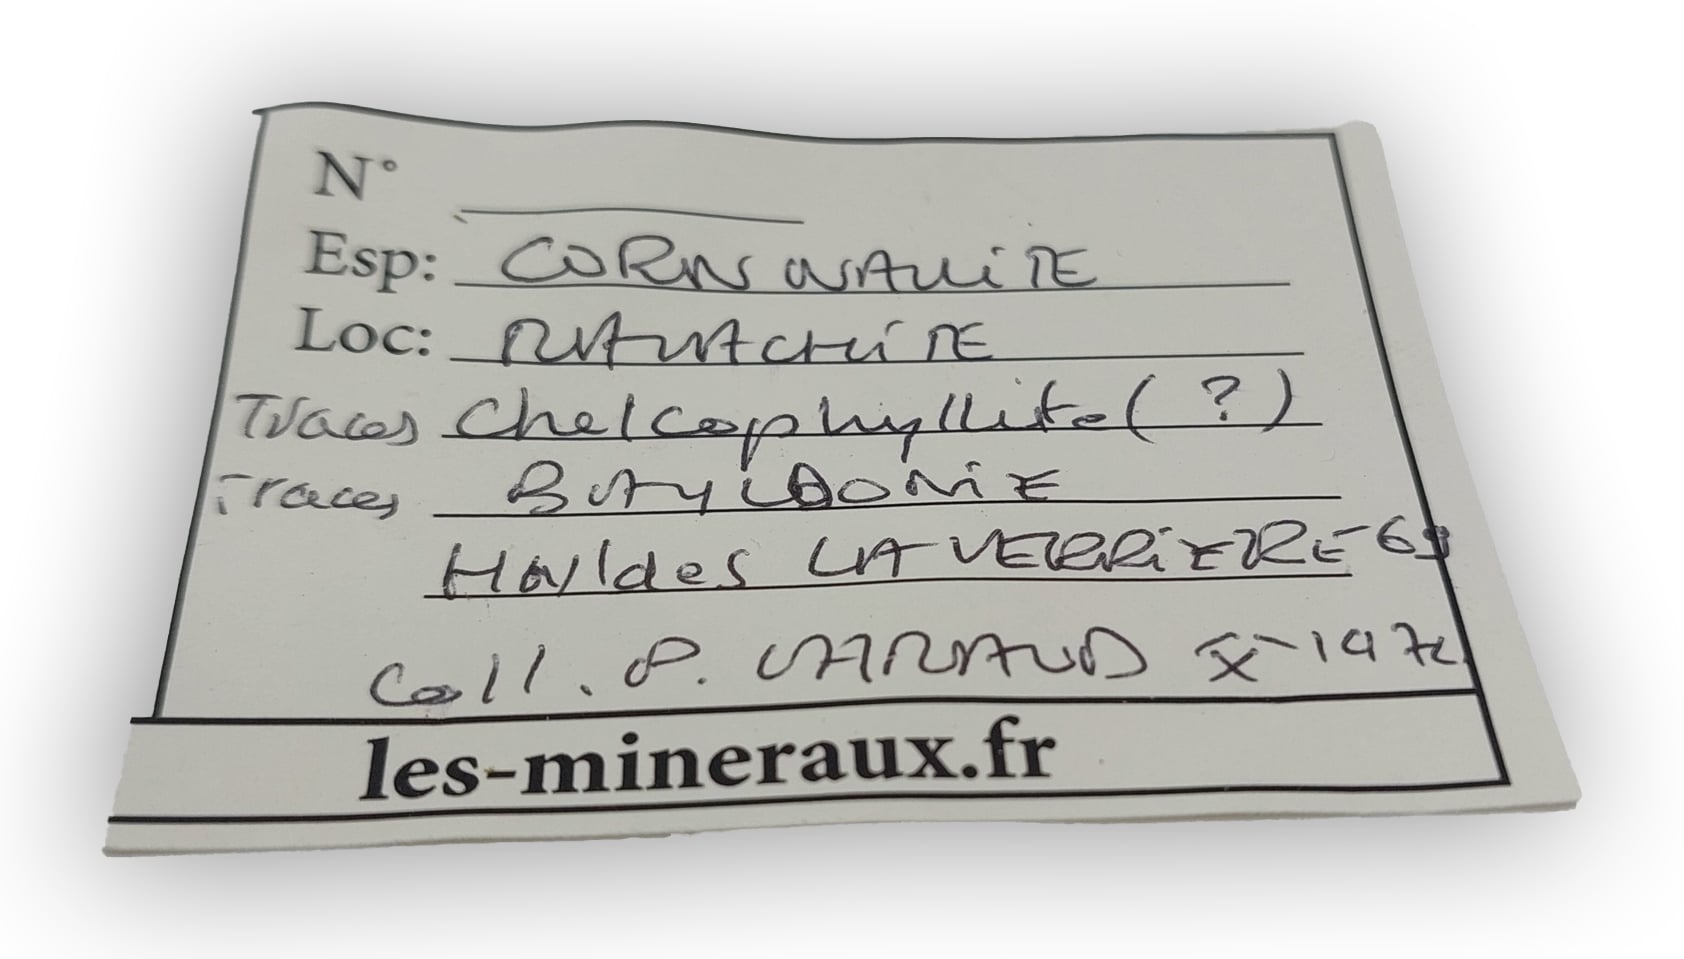 N°
Esp: CORNWALLITE
Loc: MALACHITE
Traces Chalcophyllite (?)
Traces BAYLDONITE
Haldes LA VERRIERE-69
Coll. P. X-197
les-mineraux.fr